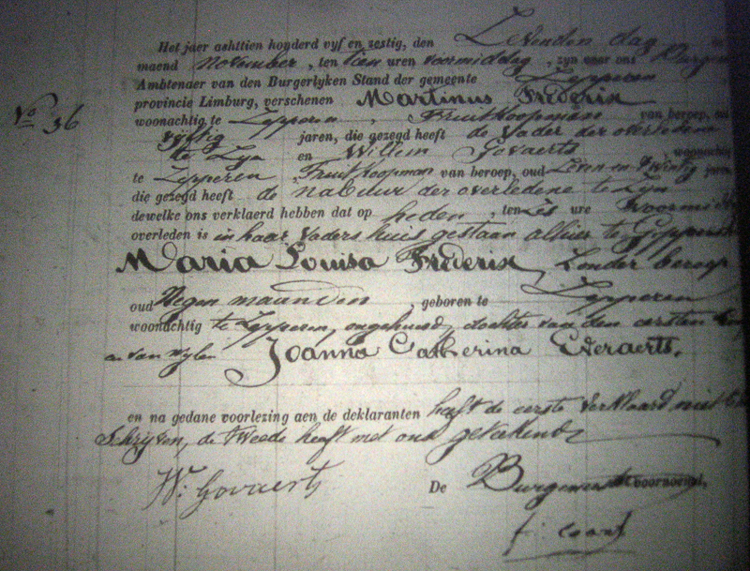 Het jaer achttien honderd vyf en zestig, den Zevenden dag
maend November, ten tien uren voormiddag, zyn voor ons Burge
Ambtenaer van den Burgerlyken Stand der gemeente Zepperen
provincie Limburg, verschenen Martinus Frederix
No 36
woonachtig te Zepperen, Fruitkoopman van beroep, oud
vyftig jaren, die gezegd heeft de vader der overledene
te zyn en Willem Govaerts woonachtig
te Zepperen, Fruitkoopman van beroep, oud Zeven en twintig jaren
die gezegd heeft de nabuur der overledene te zyn
dewelke ons verklaerd hebben dat op heden, ten zes ure voormid
overleden is in haar vaders huis gestaan alhier te Zepperen
Maria Louisa Frederix, zonder beroep
oud Negen maanden, geboren te Zepperen
woonachtig te Zepperen, ongehuwd, dochter van den eersten
en van wylen Joanna Catherina Everaerts.
en na gedane voorlezing aen de deklaranten heeft de eerste verklaard niet te
Schryven, de tweede heeft met ons getekend
W. Govaerts De Burgemeester voornoemd,